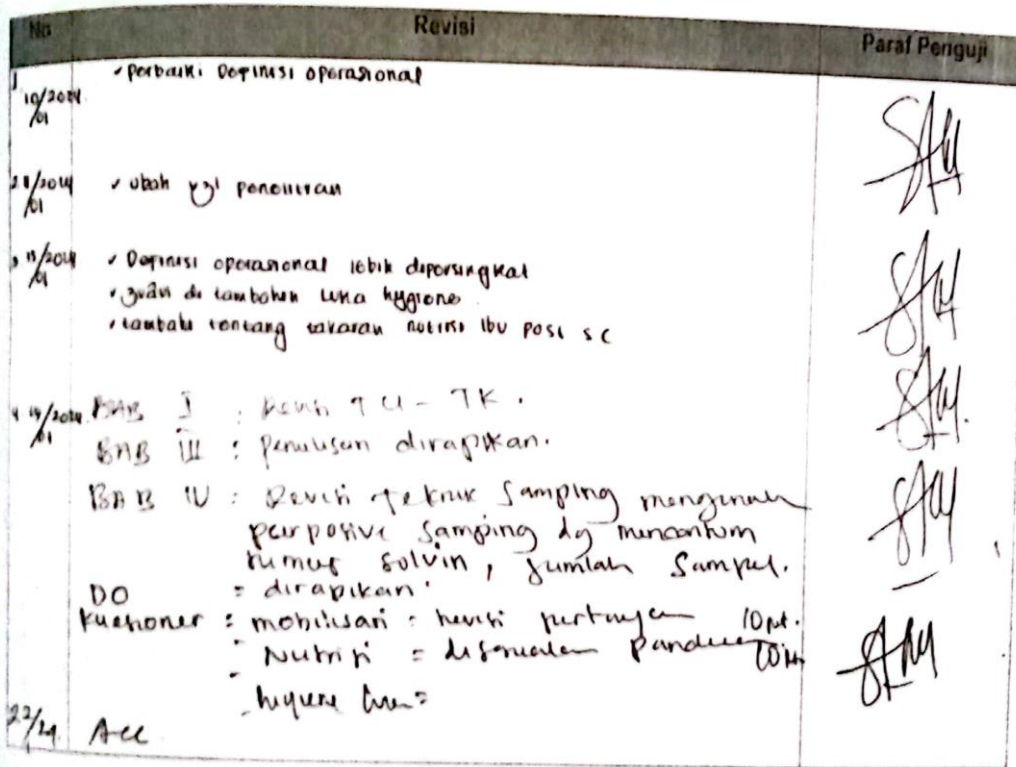 No Revisi Paraf Penguji
1 10/2024 01 ✓ perbaiki Definisi operasional
✓ ubah penelitian
✓ Definisi operasional lebih dipersingkat
✓ di tambahen luka hygiene
✓ tambah tentang takaran nutrisi ibu post sc
BAB I : Revisi TU - TK.
BAB III : penulisan dirapikan.
BAB IV : Revisi Teknik Samping
purposive Samping dg mencantum
rumus solvin, jumlah Sampel.
DO = dirapikan
Kuesioner : mobilisasi : revisi
- Nutrisi = disesuaian
- hygiene
22/24 Acc